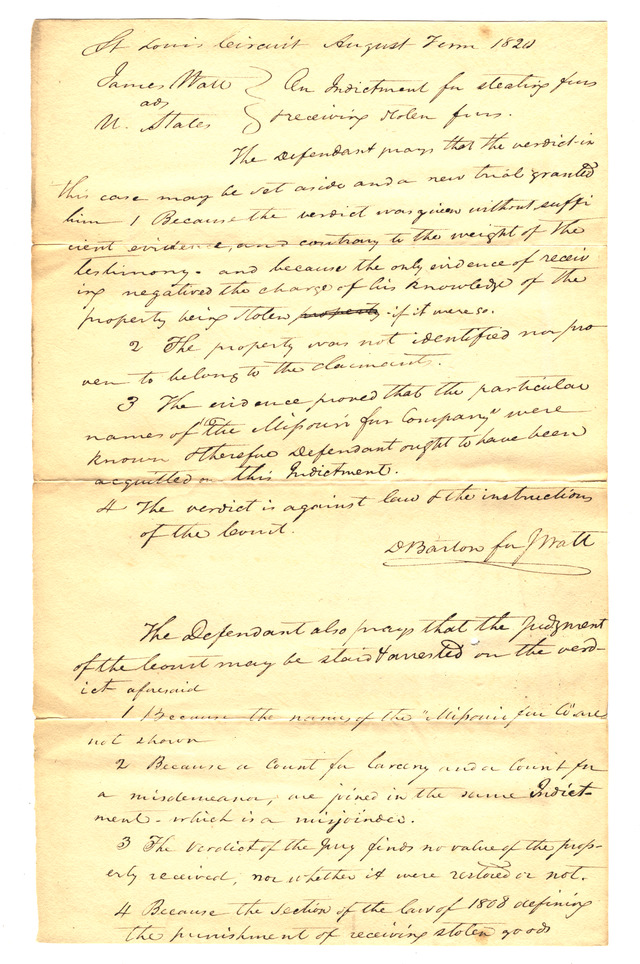 St Louis Circuit August Term 1820
James Watt } On Indictment for stealing furs
ads
U. States } & receiving stolen furs.
The Defendant prays that the verdict in
this case may be set aside and a new trial granted
him 1 Because the verdict was given without suffi
cient evidence, and contrary to the weight of the
testimony - and because the only evidence of receiv
ing negatived the charge of his knowledge of the
property being stolen property if it were so.
2 The property was not identified nor pro
ven to belong to the claimants.
3 The evidence proved that the particular
names of "The Missouri fur Company" were
known & therefore Defendant ought to have been
acquitted on this Indictment.
4 The verdict is against law & the instructions
of the Court.
D Barton for J Watt
The Defendant also prays that the Judgment
of the Court may be staid & arrested on the verd-
ict aforesaid
1 Because the names of the "Missouri fur Co" are
not shown
2 Because a Count for larceny and a Count for
a misdemeanor, are joined in the same Indict-
ment - which is a misjoinder.
3 The verdict of the Jury finds no value of the prop-
erty received, nor whether it were restored or not.
4 Because the section of the law of 1808 defining
the punishment of receiving stolen goods